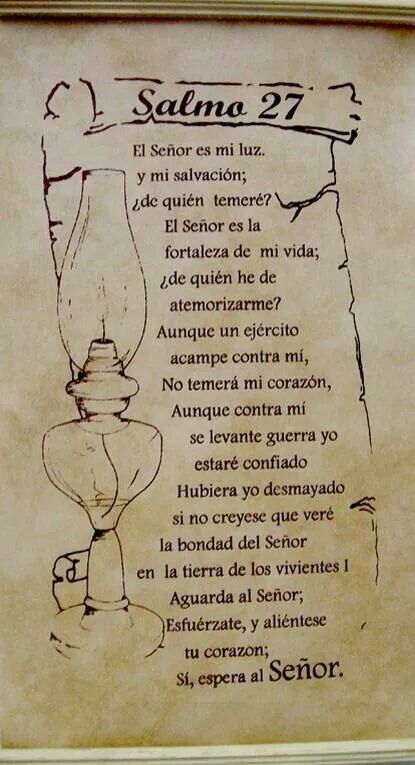 Salmo 27
El Señor es mi luz.
y mi salvación;
¿de quién temeré?
El Señor es la
fortaleza de mi vida;
¿de quién he de
atemorizarme?
Aunque un ejército
acampe contra mí,
No temerá mi corazón,
Aunque contra mí
se levante guerra yo
estaré confiado
Hubiera yo desmayado
si no creyese que veré
la bondad del Señor
en la tierra de los vivientes I
Aguarda al Señor;
Esfuérzate, y aliéntese
tu corazon;
Sí, espera al Señor.